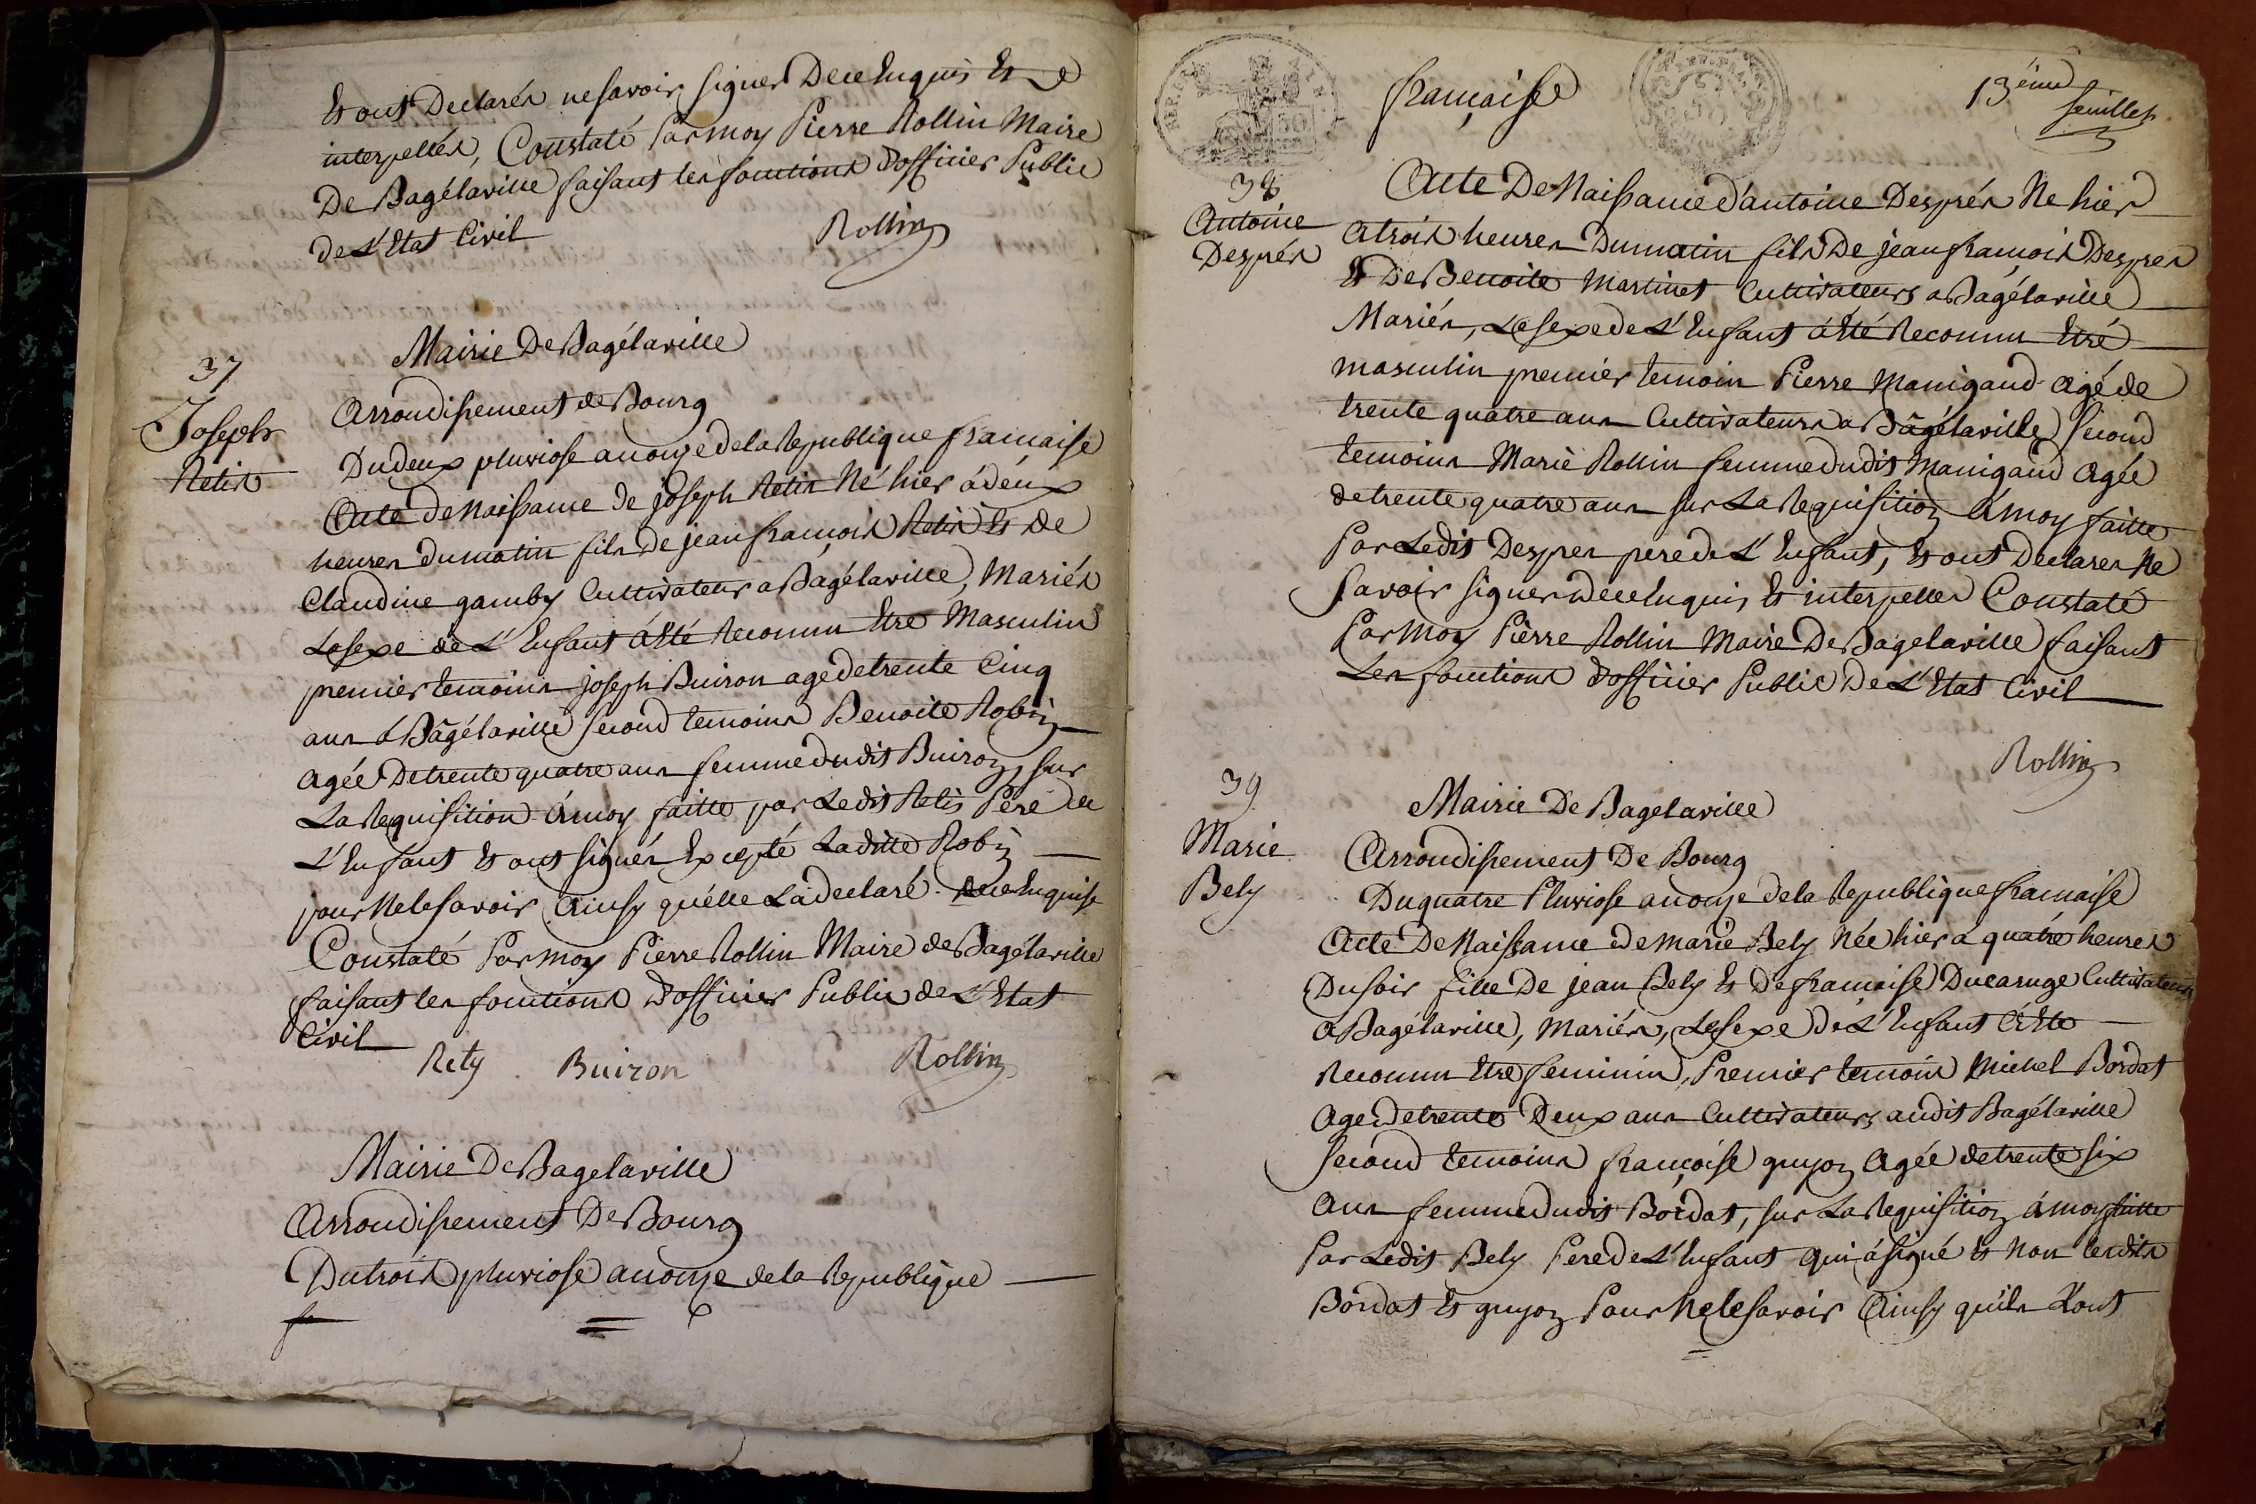 Et ont Declarés ne savoir signer De ce Enquis Et
interpellés, Constaté Par moy Pierre Rollin Maire
De Bagélaville faisant les fonctions d'officier Public
de L'Etat Civil
Rollin
Mairie De Bagélaville
37
Joseph
Retis
Arrondissement de Bourg
Du deux pluviose an onze de la Republique francaise
Acte de Naissance de joseph Retis Né hier á deux
heures du matin fils de jean françois Retis Et de
Claudine gamby Cultivateurs a Bagélaville, Mariés
Le sexe de L'Enfant á Eté Reconnu Etre Masculin
premier temoins joseph Buiron age de trente Cinq
ans á Bâgélaville second temoins Benoite Robin
agée De trente quatre ans femme dudit Buiron, sur
La Requisition á moy faitte par Ledit Retis Pere de
L'Enfant Et ont signés Excepté Laditte Robin
pour Ne le savoir Ainsy qu'élle La declaré. De ce Enquise
Constaté Par moy Pierre Rollin Maire de Bagélaville
faisant les fonctions d'officier Public de L'Etat
Civil
Rety Buiron Rollin
Mairie De Bagelaville
Arrondissement De Bourg
Du trois pluviose an onze de la Republique
fr
française
13éme
feuillet
38
Antoine
Després
Acte De Naissance d'antoine Després Né hier
A trois heures Du matin fils De jean françois Despres
Et De Benoite Martinet Cultivateurs a Bagélaville
Mariés, Le sexe de L'Enfant á Eté Reconnu Etré
masculin premier temoin Pierre Manigaud Agé de
trente quatre ans Cultivateurs a Bâgélaville second
temoins Marie Rollin femme dudit Manigaud Agée
de trente quatre ans sur La Requisition á moy faitte
Par Ledit Despres pere de L'Enfant, Et ont Declarer Ne
savoir signer De ce Enquis, Et interpeller Constaté
Par Moy Pierre Rollin Maire De Bagelaville faisant
Les fonctions d'officier Public De L'Etat Civil
Rollin
39
Marie
Bely
Mairie De Bagelaville
Arrondissement De Bourg
Du quatre Pluviose an onze de la Republique francaise
Acte De Naissance de marie Bely Née hier a quatre heures
Du soir fille De jean Bely Et De francoise Ducaruge Cultivateurs
a Bagélaville, Mariés, Le sexe de L'Enfant á Eté
Reconnu Etre feminin, Premier temoin Michel Bordat
Age de trente Deux ans Cultivateurs audit Bagélaville
second temoins françoise guyon Agée de trente six
Ans femme dudit Bordat, sur La Requisition á moy faitte
Par Ledit Bely Pere de L'Enfant qui á signé Et Non lesdits
Bordat Et guyon Pour Ne le savoir Ainsy quils L'ont